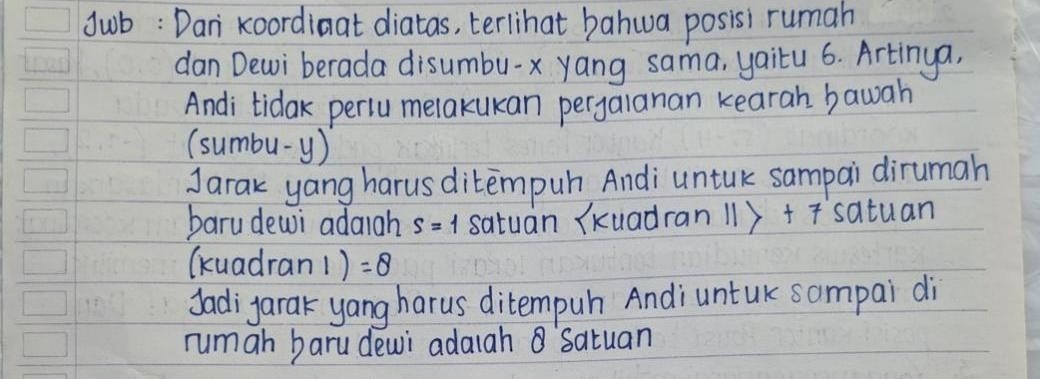 Jwb : Dari koordinat diatas, terlihat bahwa posisi rumah
dan Dewi berada disumbu-x yang sama, yaitu 6. Artinya,
Andi tidak perlu melakukan perjalanan kearah bawah
(sumbu-y)
Jarak yang harus ditempuh Andi untuk sampai dirumah
baru dewi adalah s = 1 satuan <kuadran II> + 7 satuan
(kuadran I) = 8
Jadi jarak yang harus ditempuh Andi untuk sampai di
rumah baru dewi adalah 8 Satuan